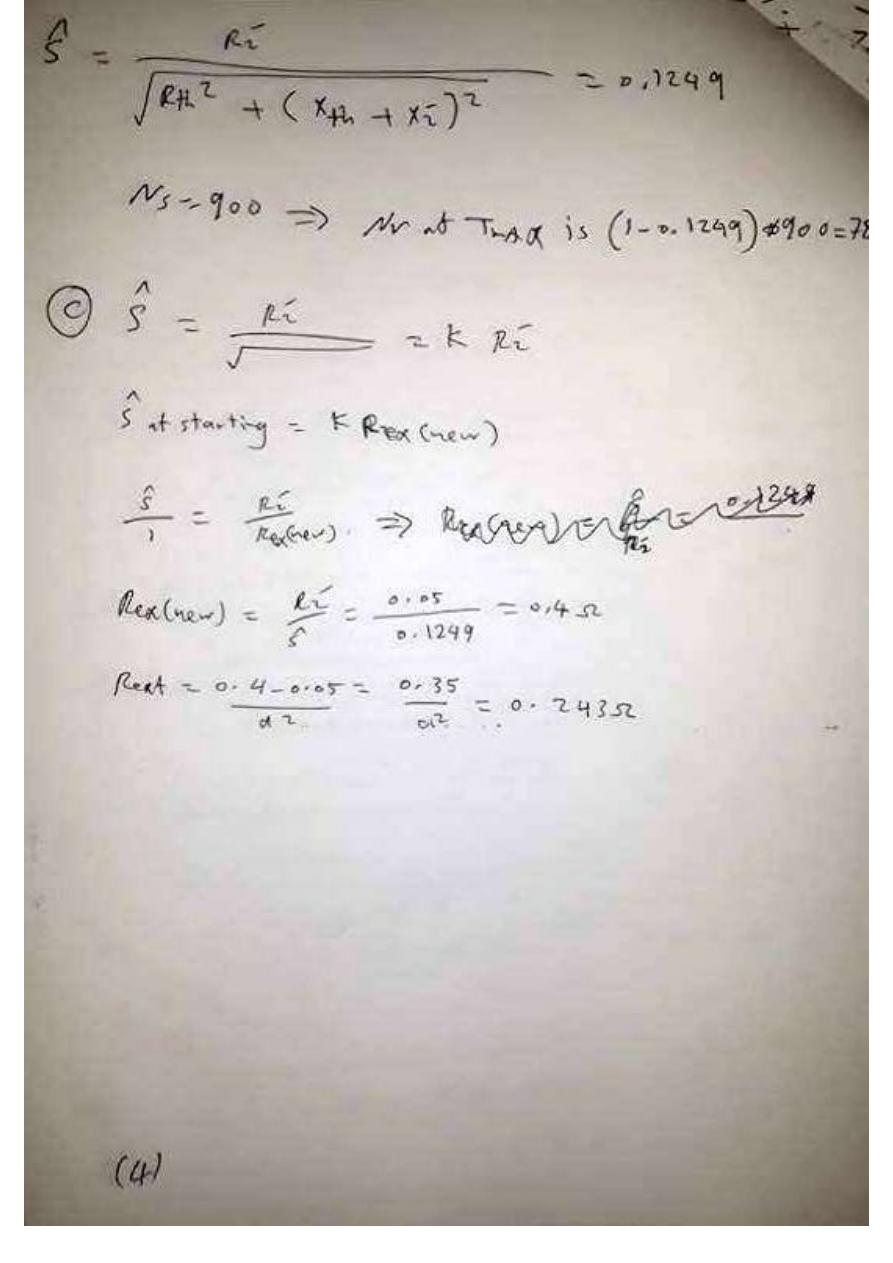 Ŝ = R2' / √(Rth² + (Xth + X2')²) = 0.1249
Ns = 900 ⇒ Nr at Tmax is (1-0.1249)*900=78
(C) Ŝ = R2' / √ = K R2'
Ŝ at starting = K Rex(new)
Ŝ / 1 = R2' / Rex(new) ⇒
Rex(new) = R2' / Ŝ = 0.05 / 0.1249 = 0.4 Ω
Rext = 0.4-0.05 / a² = 0.35 / a² = 0.243Ω
(4)